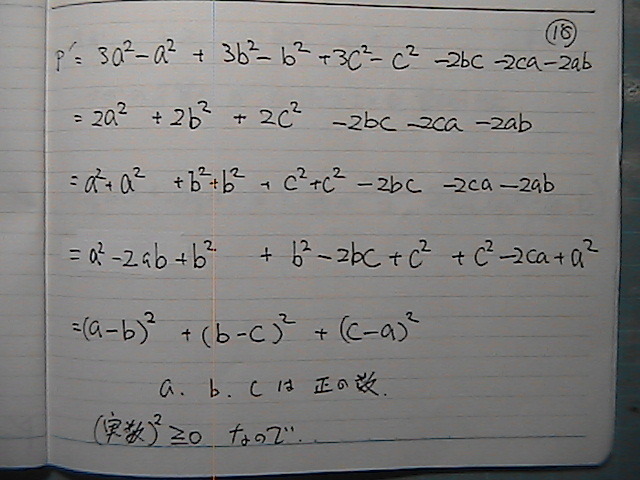 ⑱
P'= 3a²-a² + 3b²-b² +3c²-c² -2bc -2ca-2ab
= 2a² +2b² + 2c² -2bc -2ca -2ab
= a²+a² +b²+b² + c²+c² -2bc -2ca-2ab
= a²-2ab+b² + b²-2bc+c² +c²-2ca+a²
=(a-b)² +(b-c)² +(c-a)²
a. b. c は 正の数.
(実数)²≥0 なので..